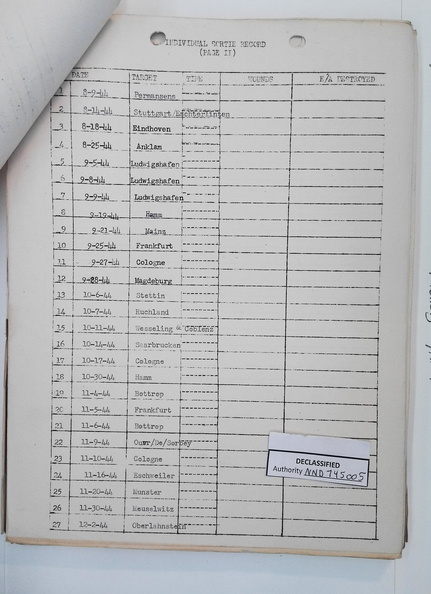 INDIVIDUAL SORTIE RECORD
(PAGE II)
DATE TARGET TIME WOUNDS E/A DESTROYED
1 8-9-44 Permansens
2 8-14-44 Stuttgart/Echterdinten
3 8-18-44 Eindhoven
4 8-25-44 Anklam
5 9-5-44 Ludwigshafen
6 9-8-44 Ludwigshafen
7 9-9-44 Ludwigshafen
8 9-19-44 Hamm
9 9-21-44 Mainz
10 9-25-44 Frankfurt
11 9-27-44 Cologne
12 9-28-44 Magdeburg
13 10-6-44 Stettin
14 10-7-44 Ruchland
15 10-11-44 Wesseling & Coblenz
16 10-14-44 Saarbrucken
17 10-17-44 Cologne
18 10-30-44 Hamm
19 11-4-44 Bottrop
20 11-5-44 Frankfurt
21 11-6-44 Bottrop
22 11-9-44
23 11-10-44 Cologne
24 11-16-44 Eschweiler
25 11-20-44 Munster
26 11-30-44 Meuselwitz
27 12-2-44 Oberlahnstein
DECLASSIFIED
Authority NND 745005